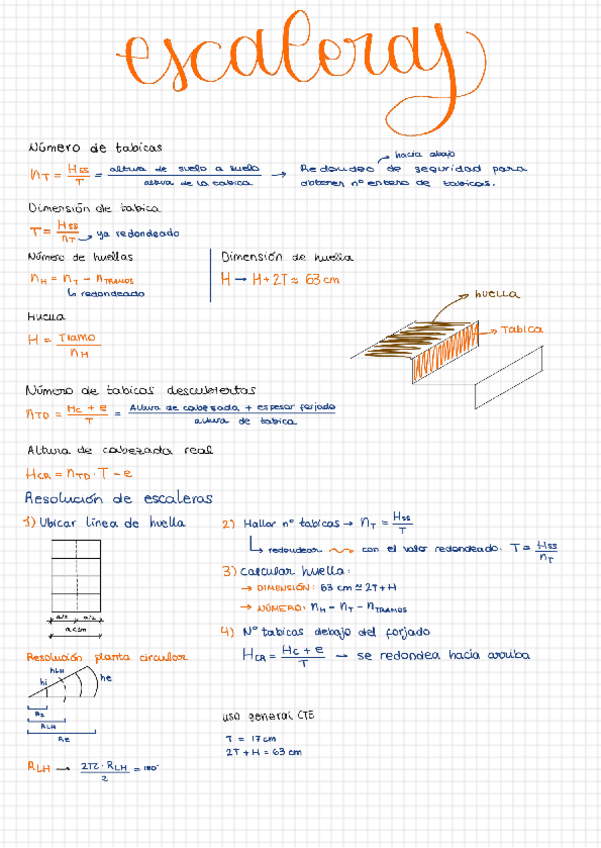 escaleras
Número de tabicas
nT = Hss / T = altura de suelo a suelo / altura de la tabica → Redondeo de seguridad para obtener nº entero de tabicas.
hacia abajo
Dimensión de tabica
T = Hss / nT → ya redondeado
Número de huellas
nH = nT - nTRAMOS
↳ redondeado
Dimensión de huella
H → H + 2T ≈ 63 cm
Huella
H = Tramo / nH
huella
Tabica
Número de tabicas descubiertas
nTD = Hc + e / T = Altura de cabezada + espesor forjado / altura de tabica
Altura de cabezada real
HCR = nTD · T - e
Resolución de escaleras
1) Ubicar línea de huella
a/2 a/2
a cm
2) Hallar nº tabicas → nT = Hss / T
↳ redondear → con el valor redondeado. T = Hss / nT
3) Calcular huella:
→ DIMENSIÓN: 63 cm ≈ 2T + H
→ NÚMERO: nH = nT - nTRAMOS
4) Nº tabicas debajo del forjado
HCR = Hc + e / T → se redondea hacia arriba
Resolución planta circular
hLH
hi
he
RLH
Re
RLH → 2π · RLH / 2 = 180º
uso general CTE
T = 17 cm
2T + H = 63 cm